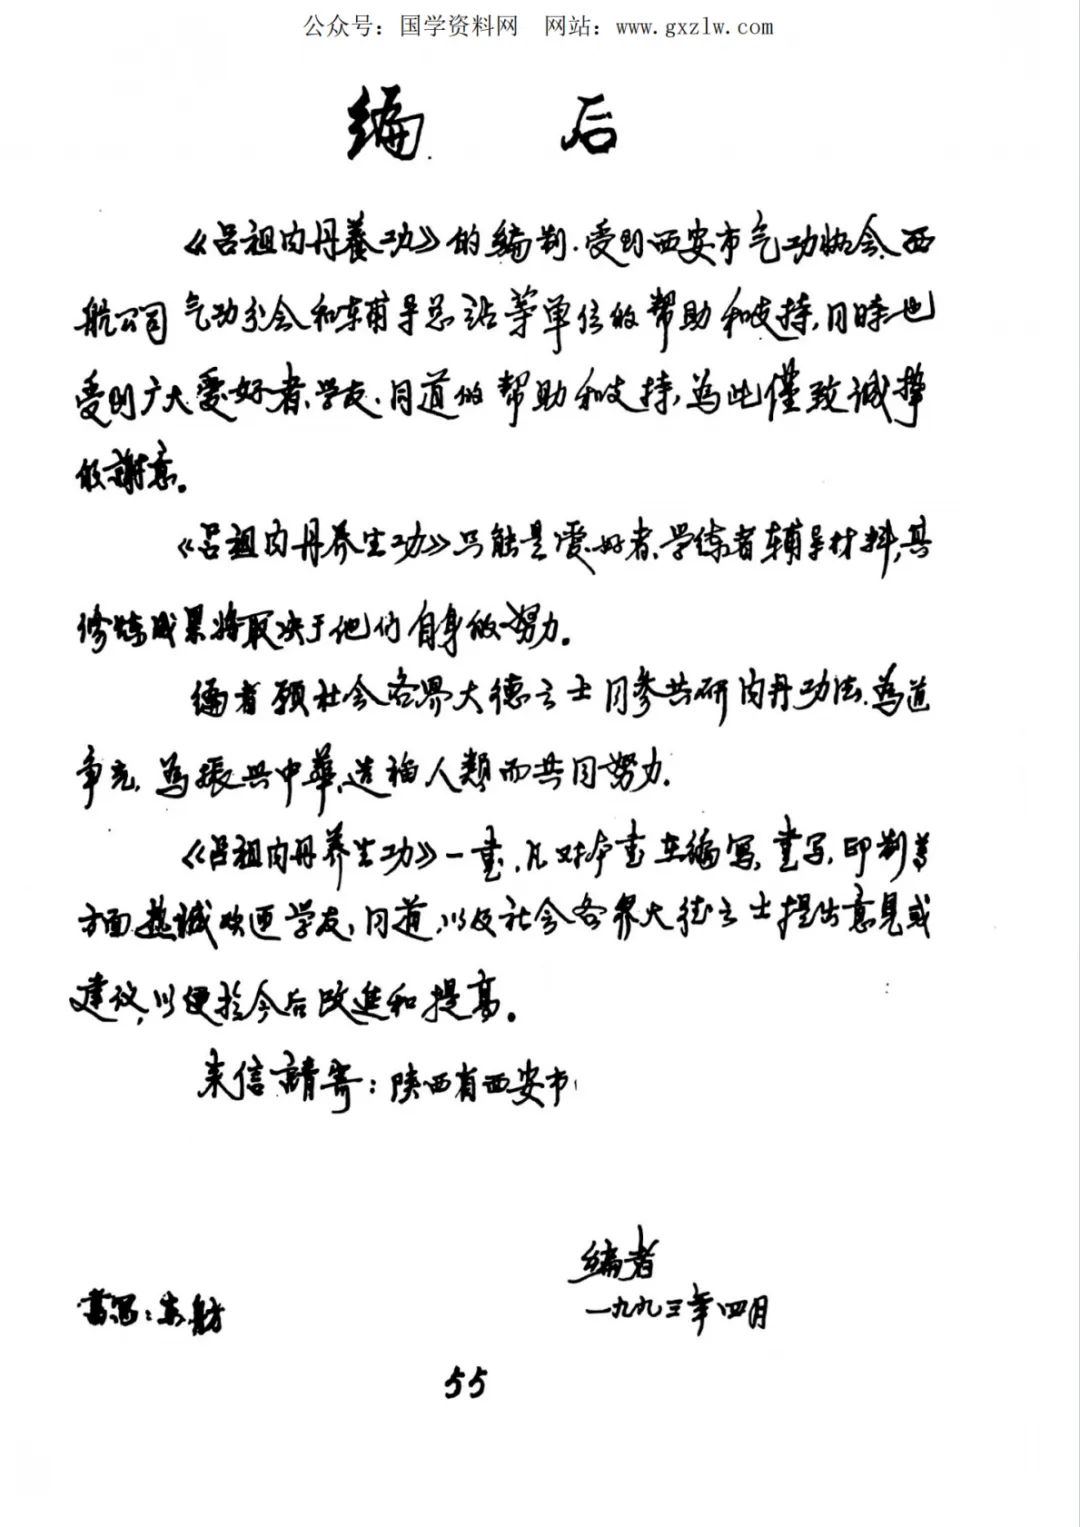 公众号：国学资料网 网站：www.gxzlw.com
编后
《吕祖内丹養功》的编制.受到西安市气功协会、西
航公司气功分会和辅导总站等单位的帮助和支持,同時也
受到广大爱好者、学友、同道的帮助和支持,為此僅致诚挚
的謝意。
《吕祖内丹养生功》只能是爱好者、学练者辅导材料,其
修炼成果将取决于他们自身的努力。
编者願社会各界大德之士同参共研内丹功法.為道
争光,為振兴中華,造福人類而共同努力.
《吕祖内丹养生功》一書,凡对本書在编写,書写,印制等
方面热诚欢迎学友,同道,以及社会各界大德之士提出意見或
建议,以便於今后改進和提高。
来信請寄：陕西省西安市
编者
一九九三年四月
書写：
55